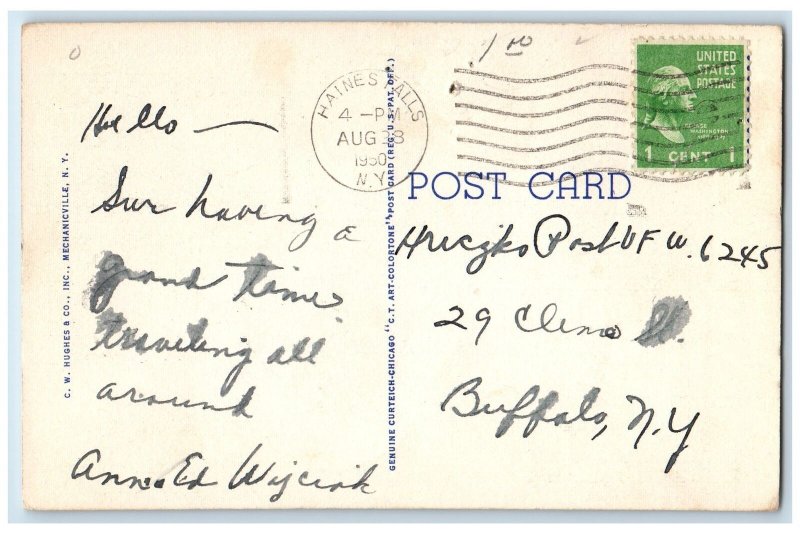 1 00
HAINES FALLS
4 - PM
AUG 28
1950
N.Y.
UNITED
STATES
POSTAGE
1 CENT 1
POST CARD
Hello —
Sur having a
grand time
traveling all
around
Ann & Ed Wijciak
Hriczko Post VFW. 6245
29 Clemo St.
Buffalo, N.Y
C. W. HUGHES & CO., INC., MECHANICVILLE, N. Y.
GENUINE CURTEICH-CHICAGO "C.T. ART-COLORTONE" POST CARD (REG. U.S. PAT. OFF.)